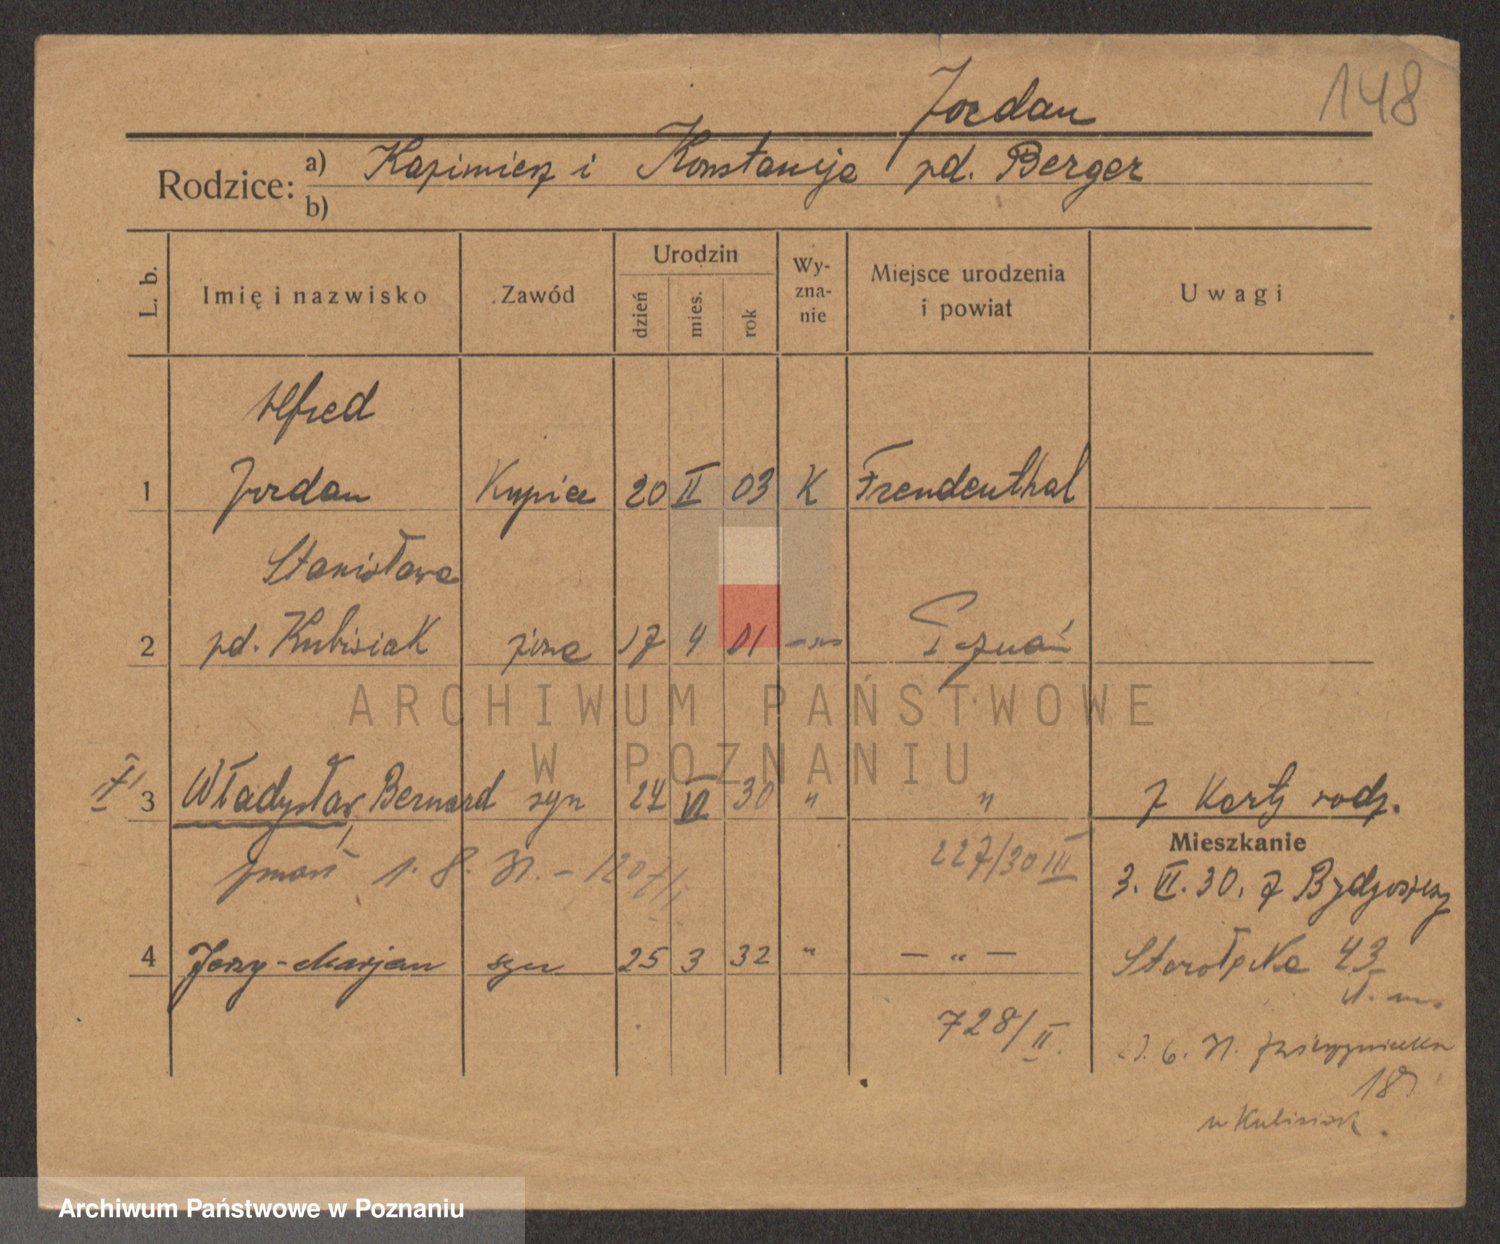 148
Jordan
Rodzice: a) Kazimierz i Konstancja zd. Berger
b)
L. b. Imię i nazwisko Zawód Urodzin dzień mies. rok Wy-zna-nie Miejsce urodzenia i powiat Uwagi
Alfred
1 Jordan Kupiec 20 II 03 K Freudenthal
Stanisława
2 zd. Kubisiak żona 17 4 01 -"- Poznań
ARCHIWUM PAŃSTWOWE
W POZNANIU
3 Władysław, Bernard syn 24 VI 30 " " z Karty rodz.
Mieszkanie
zmarł 1. 8. 31. - 1207/II 227/30 III
3. VI. 30. z Bydgoszczy
4 Jerzy-Marjan syn 25 3 32 " - " -
Starołęcka 43
728/II.
6. 31.
18
u Kubisiak.
Archiwum Państwowe w Poznaniu